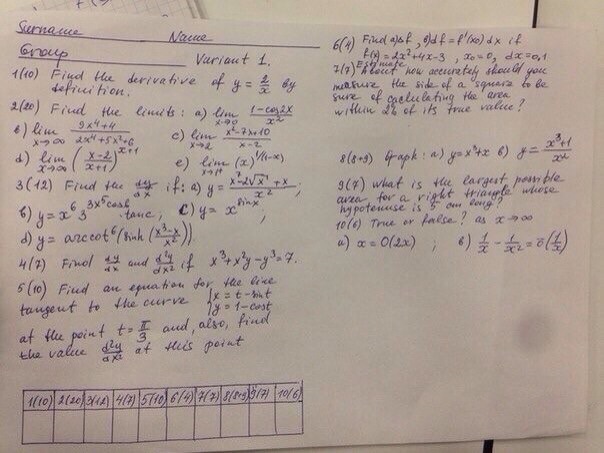 Surname Name
Group Variant 1.
1(10) Find the derivative of y = 2/x by
definition.
2(20) Find the limits: a) lim x→0 (1-cos2x)/x²
b) lim x→∞ (9x⁴+4)/(2x⁴+5x²+6) c) lim x→2 (x²-7x+10)/(x-2)
d) lim x→∞ ((x-2)/(x+1))^(x+1) e) lim x→1+ (x)^(1/(1-x))
3(12) Find the dy/dx if: a) y = (x²-2√x+x)/x² ;
b) y = x⁶ 3^(3x⁵cosh) tanc, c) y = x^(sinx) ;
d) y = arccot⁶(sinh((x³-x)/x²)).
4(7) Find dy/dx and d²y/dx² if x³+x²y-y³=7.
5(10) Find an equation for the line
tangent to the curve {x = t-sint
y = 1-cost
at the point t = π/3 and, also, find
the value d²y/dx² at this point
1(10) 2(20) 3(12) 4(7) 5(10) 6(4) 7(7) 8(8+9) 9(7) 10(6)
6(4) Find a) Δf, b) df = f'(x₀)dx if
f(x) = 2x²+4x-3, x₀=0, dx=0,1
Estimate
7(7) About how accurately should you
measure the side of a square to be
sure of caclulating the area
within 2% of its true value?
8(8+9) Graph: a) y=x³+x b) y = (x³+1)/x²
9(7) What is the largest possible
area for a right triangle whose
hypotenuse is 5 cm long?
10(6) True or false? as x→∞
a) x = O(2x) ; b) 1/x - 1/x² = o(1/x)